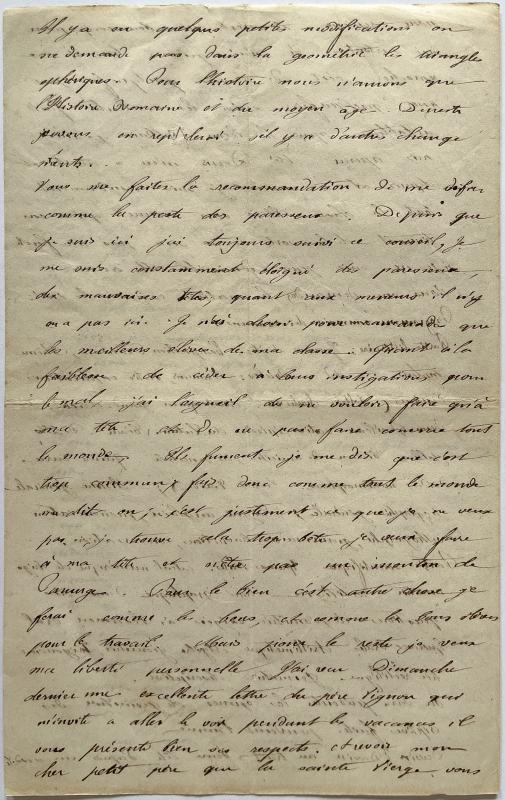 Il y a eu quelques petites modifications on
ne demande pas dans la geométrie les triangles
spheriques. Pour l'histoire nous n'aurons que
l'Histoire Romaine et du moyen age. Directe
on s'il y a d'autres change
ments.
Vous me faites la recommandation de me defier
comme la peste des paresseux. Depuis que
je suis ici j'ai toujours suivi ce conseil, je
me suis constamment éloigné des paresseux,
des mauvaises têtes, quant aux il n'y
en a pas ici. Je n'ai choisi pour camarade que
les meilleurs élèves de ma classe. Quant à la
faiblesse de céder à leurs instigations pour
le mal j'ai l'orgueil de ne vouloir faire qu'à
ma tête et de ne pas faire comme tout
le monde. Ils fument je me dis que c'est
trop commun, fais donc comme tout le monde
me dit on, c'est justement ce que je ne veux
pas, je trouve cela trop bete, je veux faire
à ma tête et n'être pas un mouton de
Panurge. Pour le bien c'est autre chose je
ferai comme les bons, et comme les bons élèves
pour le travail. Mais pour le reste je veux
ma liberté personnelle. J'ai reçu Dimanche
dernier une excellente lettre du père Vignon qui
m'invite a aller le voir pendant les vacances il
vous présente bien ses respects. Au revoir mon
cher petit père que la sainte Vierge vous